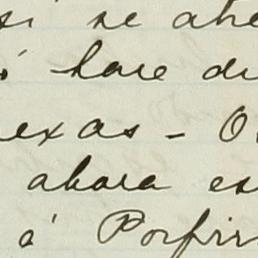 si se abe
ó hace di
exas - O
ahora es
á Porfiri